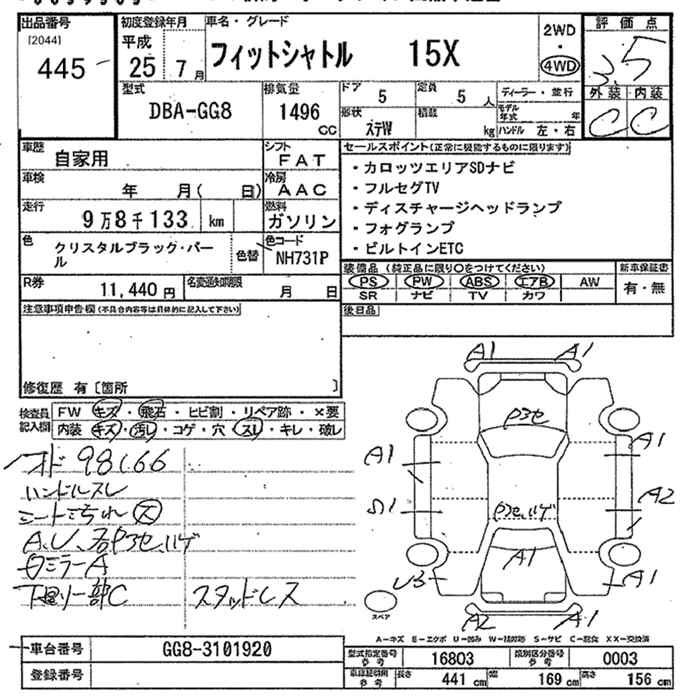 出品番号 初度登録年月 車名・グレード 2WD ・ 4WD 評価点
[2044]
445
平成 25 7月
フィットシャトル 15X
3.5
外装 内装
C C
型式 DBA-GG8
排気量 1496 CC
ドア 5 定員 5 人
ディーラー・並行
形状 ステW 積載 kg
モデル年式 年
ハンドル 左・右
車歴 自家用
シフト FAT
車検 年 月( 日)
冷房 AAC
走行 9万8千133 km
燃料 ガソリン
色 クリスタルブラック・パール
色替
色コード NH731P
R券 11,440円
名変通知期限 月 日
セールスポイント(正常に機能するものに限ります)
・カロッツエリアSDナビ
・フルセグTV
・ディスチャージヘッドランプ
・フォグランプ
・ビルトインETC
装備品 (純正品に限り○をつけてください) 新車保証書
PS PW ABS エアB AW 有・無
SR ナビ TV カワ
後日品
注意事項申告欄(不具合内容等は具体的に記入して下さい)
修復歴 有〔箇所 〕
検査員記入欄
FW キズ・飛石・ヒビ割・リペア跡・×要
内装 キズ・汚レ・コゲ・穴・スレ・キレ・破レ
98166
ハンドルスレ
シートよごれ 大
ミラーA
下廻り一部C スタッドレス
A1 A1
A1 A1
S1 A2
A1
U3 A1
A2 A1
スペア
A-キズ E-エクボ U-凹み W-補修跡 S-サビ C-腐食 XX-交換済
車台番号 GG8-3101920
登録番号
型式指定番号 参考 16803 類別区分番号 参考 0003
車検証明細 参考 長さ 441 cm 幅 169 cm 高さ 156 cm